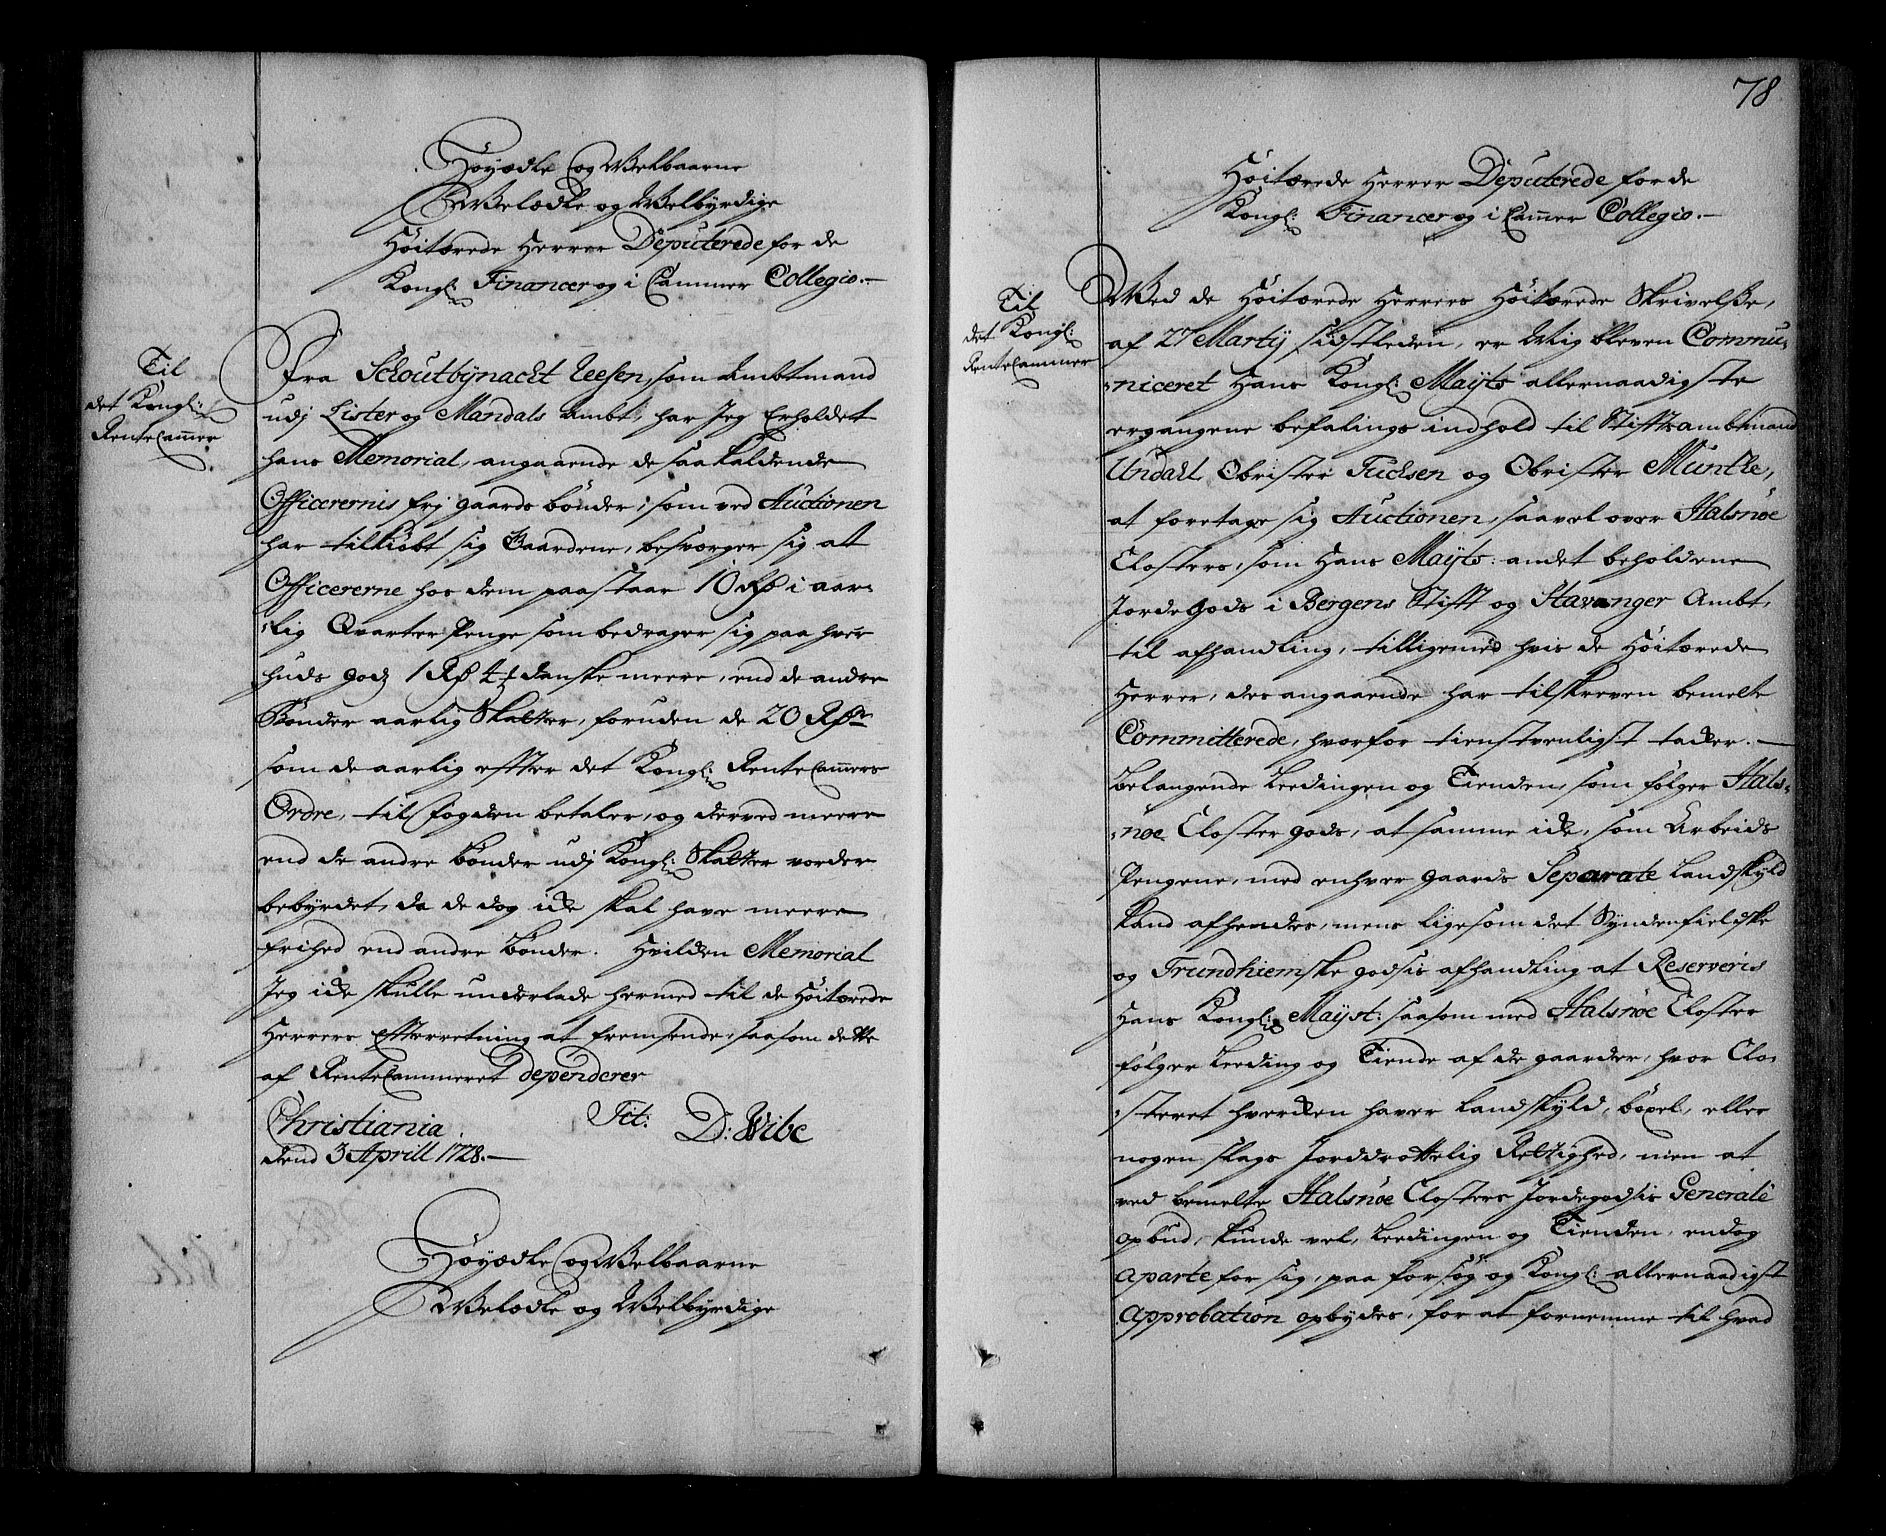 Høyædle og Welbaarne
Welædle og Welbyrdige
Høitærede Herrer Deputerede for de
Kongl: Financer og i Cammer Collegio.
Til
det Kongl:
RenteCammer
Fra Schoutbynacht Reesen, som Ambtmand
udj Lister og Mandals Ambt, har Jeg Erholdet
hans Memorial, angaaende de saakaldende
Officerernis frj gaards bønder, som ved Auctionen
har tilkiøbt sig Gaardene, besværger sig at
Officererne hos dem paastaar 10 Rd i aar-
lig Qvarter Penge som bedrager sig paa hver
huds godz 1 Rd danske meere, end de andre
Bønder aarlig Skatter, foruden de 20 Rdr
som de aarlig effter det Kongl: RenteCammers
Ordre, til fogden betaler, og derved meere
end de andre bønder udj Kongl: Skatter vorder
bebyrdet, da de dog icke skal have meere
frihed end andre bønder. Hvilcken Memorial
Jeg icke skulle underlade hermed til de Høitærede
Herrers Effterretning at fremsende, saasom dette
af RenteCammeret dependerer
Christiania Tit: D: Wibe
dend 3 Aprill 1728.
Høyædle og Welbaarne
Welædle og Welbyrdige
78
Høitærede Herrer Deputerede for de
Kongl: Financer og i Cammer Collegio.
Til
det Kongl:
RenteCammer
Wed de Høitærede Herrers Høitærede Skrivelsse,
af 27 Martij sidstleden, er Mig bleven Commu-
niceret Hans Kongl: Mayts allernaadigste
ergangene befalings indhold til Stifftsambtmand
Undall Obrister Tuchsen og Obrister Munthe,
at foretage sig Auctionen, saavel over Halsnøe
Closters, som Hans Mayts: andet beholdene
Jordegods i Bergens Stifft og Stavanger Ambt,
til afhandling, tilligemed hvis de Høitærede
Herrer, desangaaende har tilskreven bemelte
Committerede, hvorfor tienstvenligst tacker.
Belangende Leedingen og Tienden, som følger Hals-
nøe Closter gods, at samme icke, som Arbeids
Pengene, med enhver gaards Separate Landskyld
kand afhendes, mens ligesom det Syndenfieldske
og Trundhiemske godsis afhandling at Reserveris
Hans Kongl: Mayst: saasom med Halsnøe Closter
følger Leeding og Tiende af de gaarder, hvor Clo-
steret hvercken haver Landskyld, bøxel, eller
nogen slags Jorddrottelig Rettighed, men at
ved bemelte Halsnøe Closters Jordegodsis Generale
opbud, kunde vel, Leedingen og Tienden, endog
aparte for sig, paa forsøg og Kongl: allernaadigst
approbation opbydes, for at fornemme til hvad